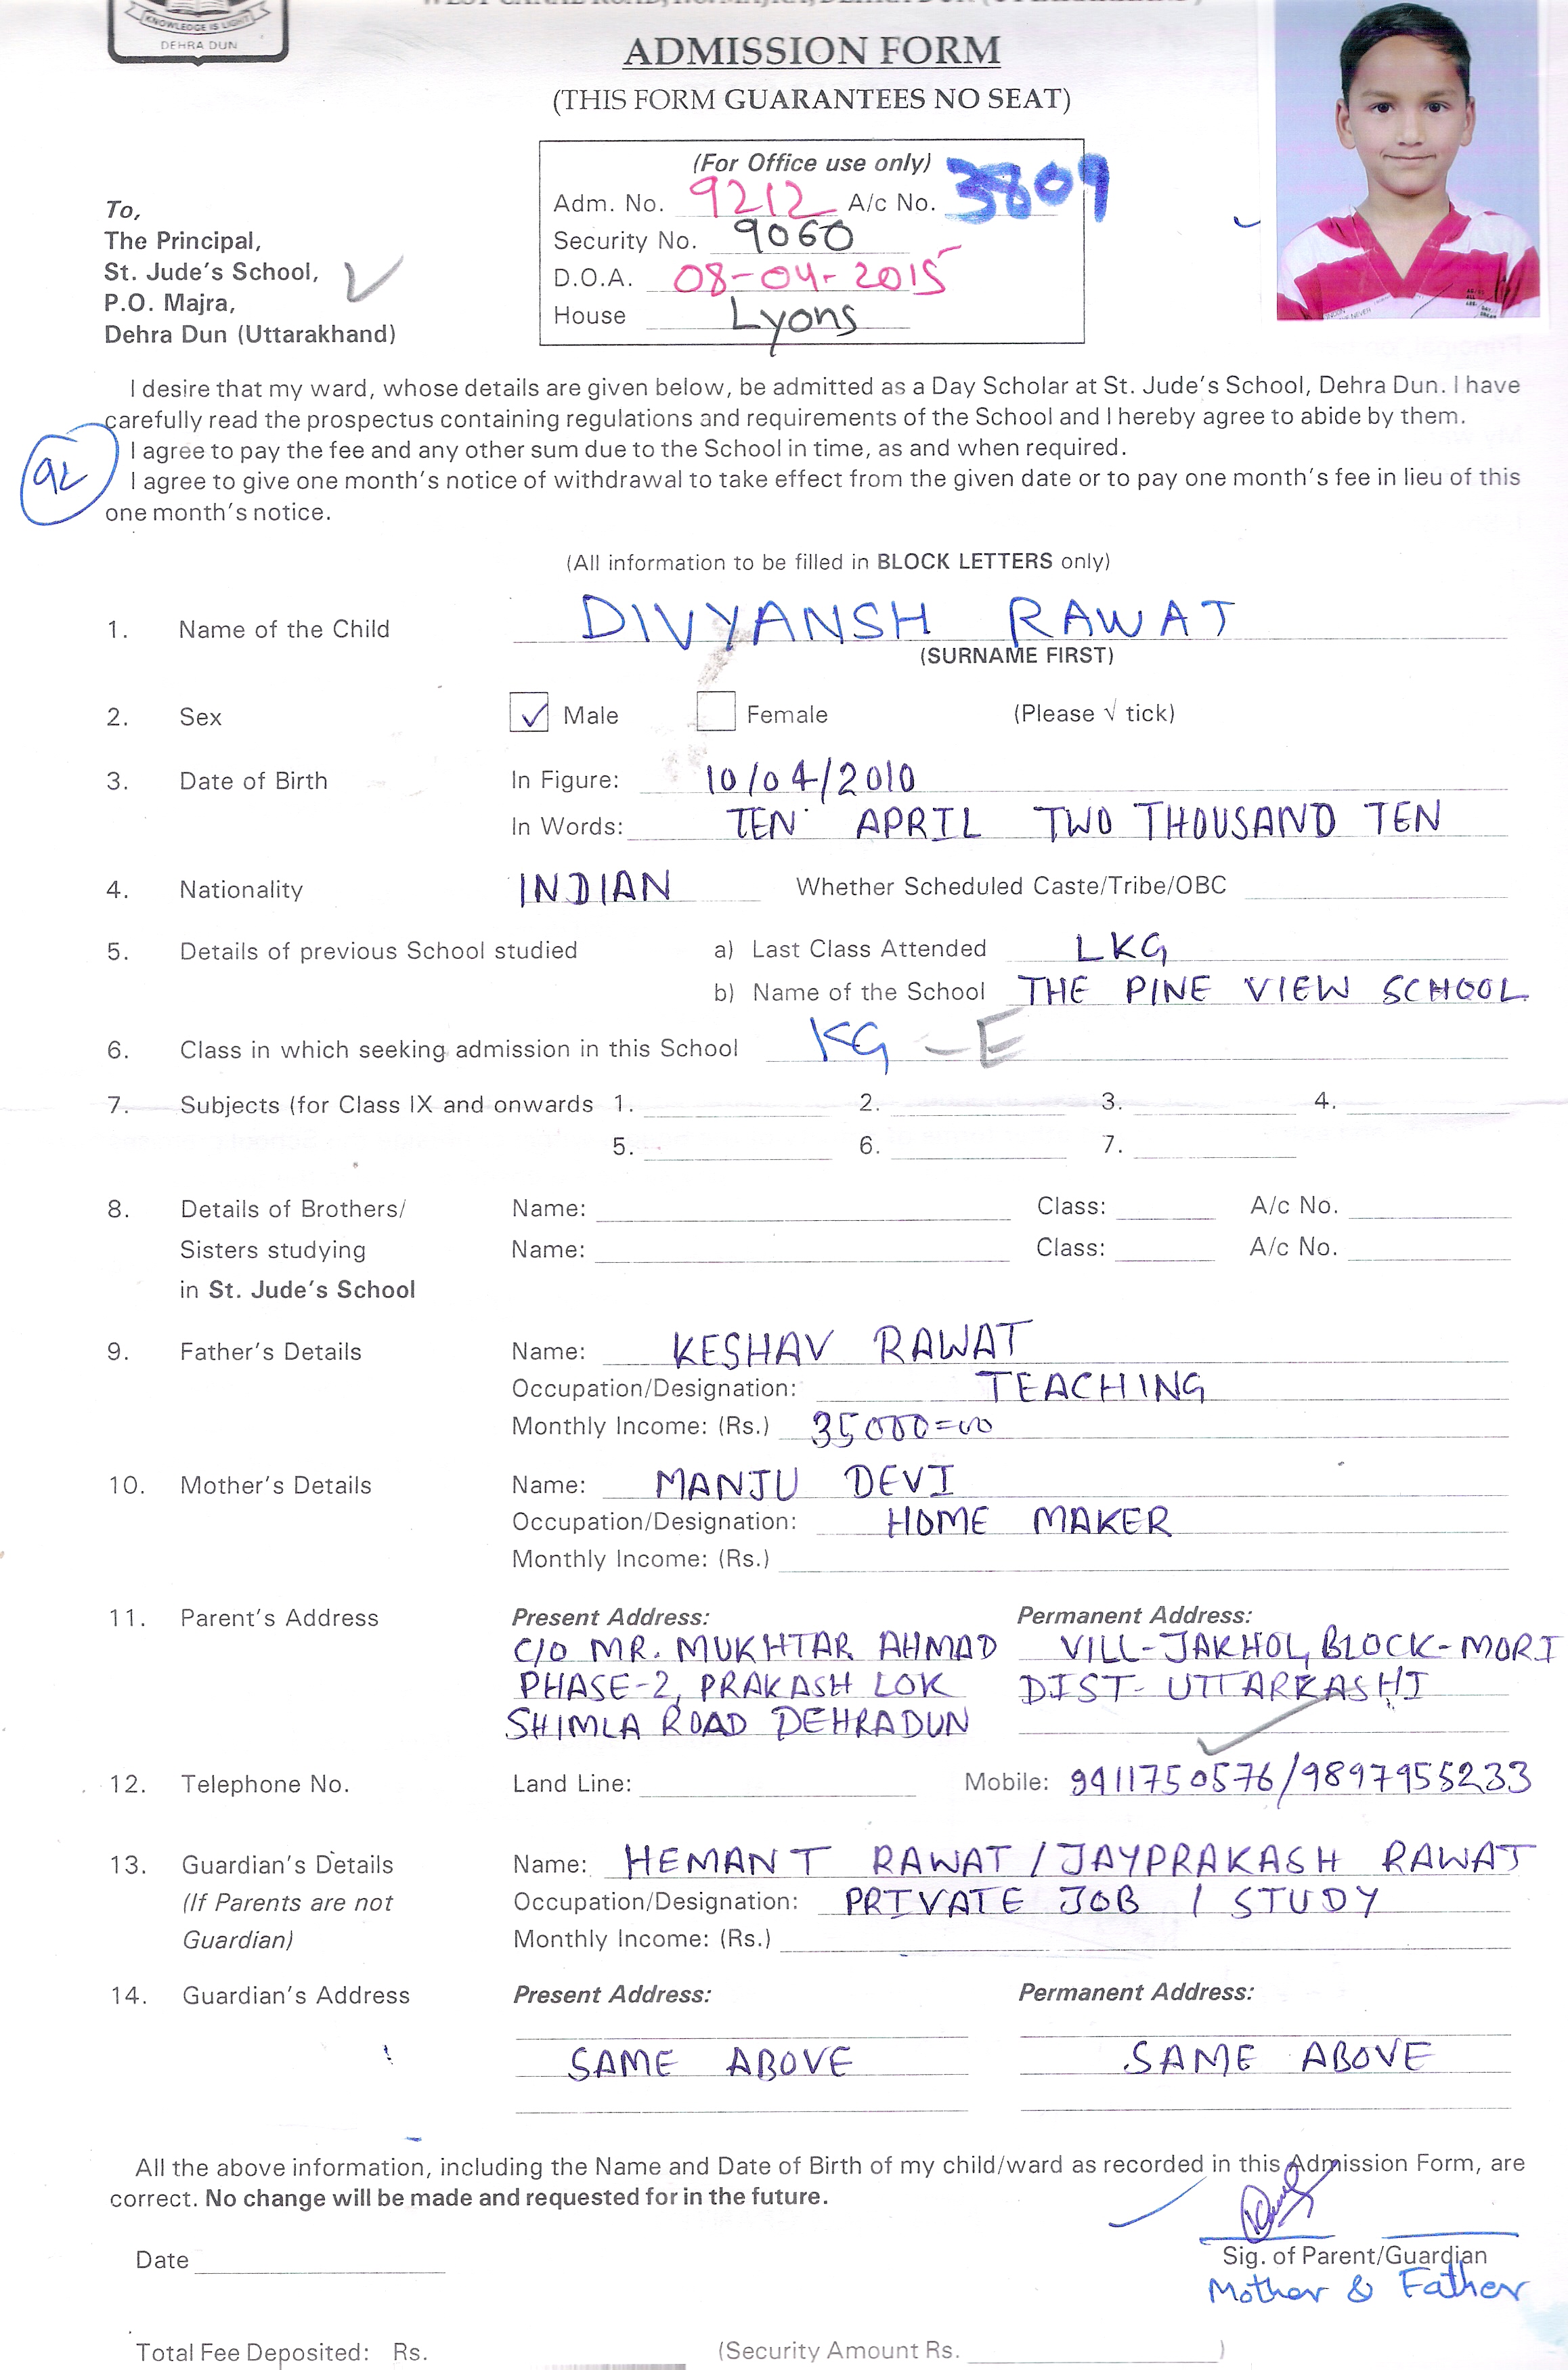 KNOWLEDGE IS LIGHT
DEHRA DUN
ADMISSION FORM
(THIS FORM GUARANTEES NO SEAT)
(For Office use only)
Adm. No. 9212 A/c No. 3809
Security No. 9060
D.O.A. 08-04-2015
House Lyons
To,
The Principal,
St. Jude's School,
P.O. Majra,
Dehra Dun (Uttarakhand)
I desire that my ward, whose details are given below, be admitted as a Day Scholar at St. Jude's School, Dehra Dun. I have
carefully read the prospectus containing regulations and requirements of the School and I hereby agree to abide by them.
I agree to pay the fee and any other sum due to the School in time, as and when required.
I agree to give one month's notice of withdrawal to take effect from the given date or to pay one month's fee in lieu of this
one month's notice.
(All information to be filled in BLOCK LETTERS only)
1. Name of the Child DIVYANSH RAWAT
(SURNAME FIRST)
2. Sex ✓ Male Female (Please √ tick)
3. Date of Birth In Figure: 10/04/2010
In Words: TEN APRIL TWO THOUSAND TEN
4. Nationality INDIAN Whether Scheduled Caste/Tribe/OBC
5. Details of previous School studied a) Last Class Attended LKG
b) Name of the School THE PINE VIEW SCHOOL
6. Class in which seeking admission in this School KG - E
7. Subjects (for Class IX and onwards 1. 2. 3. 4.
5. 6. 7.
8. Details of Brothers/ Name: Class: A/c No.
Sisters studying Name: Class: A/c No.
in St. Jude's School
9. Father's Details Name: KESHAV RAWAT
Occupation/Designation: TEACHING
Monthly Income: (Rs.) 35000=00
10. Mother's Details Name: MANJU DEVI
Occupation/Designation: HOME MAKER
Monthly Income: (Rs.)
11. Parent's Address Present Address: Permanent Address:
C/O MR. MUKHTAR AHMAD VILL-JAKHOL, BLOCK-MORI
PHASE-2, PRAKASH LOK DIST- UTTARKASHI
SHIMLA ROAD DEHRADUN
12. Telephone No. Land Line: Mobile: 9411750576/9897955233
13. Guardian's Details Name: HEMANT RAWAT / JAYPRAKASH RAWAT
(If Parents are not Occupation/Designation: PRIVATE JOB / STUDY
Guardian) Monthly Income: (Rs.)
14. Guardian's Address Present Address: Permanent Address:
SAME ABOVE SAME ABOVE
All the above information, including the Name and Date of Birth of my child/ward as recorded in this Admission Form, are
correct. No change will be made and requested for in the future.
Date Sig. of Parent/Guardian
Mother & Father
Total Fee Deposited: Rs. (Security Amount Rs. )